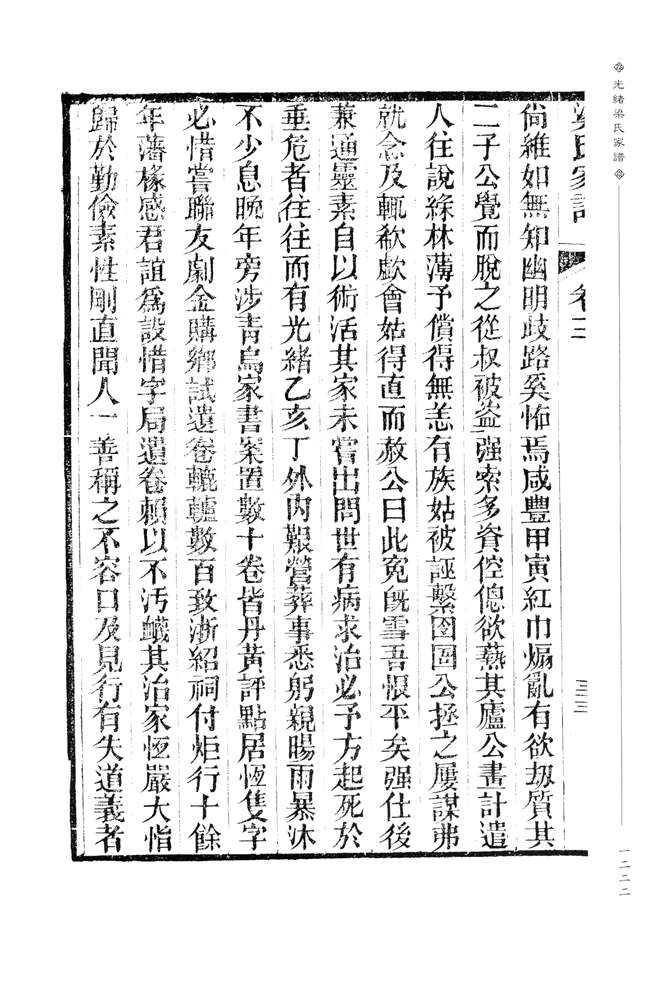 光緒梁氏家譜
一二二二
梁氏家譜 卷三 三三
尙維如無知幽明歧路奚怖焉咸豐甲寅紅巾煽亂有欲刼質其
二子公覺而脫之從叔被盗强索多資倥傯欲爇其廬公畫計遣
人往說綠林薄予償得無恙有族姑被誣繫囹圄公拯之屢謀弗
就念及輒欷歔會姑得直而赦公曰此寃旣雪吾恨平矣强仕後
兼通靈素自以術活其家未嘗出問世有病求治必予方起死於
垂危者往往而有光緒乙亥丁外内艱營葬事悉躬親暘雨暴沐
不少息晩年旁涉靑烏家書案置數十卷皆丹黃評點居恆隻字
必惜嘗聯友劇金購鄕試遺卷轆轤數百致浙紹祠付炬行十餘
年藩椽感君誼爲設惜字局遺卷賴以不汚衊其治家恆嚴大恉
歸於勤儉素性剛直聞人一善稱之不容口及見行有失道義者